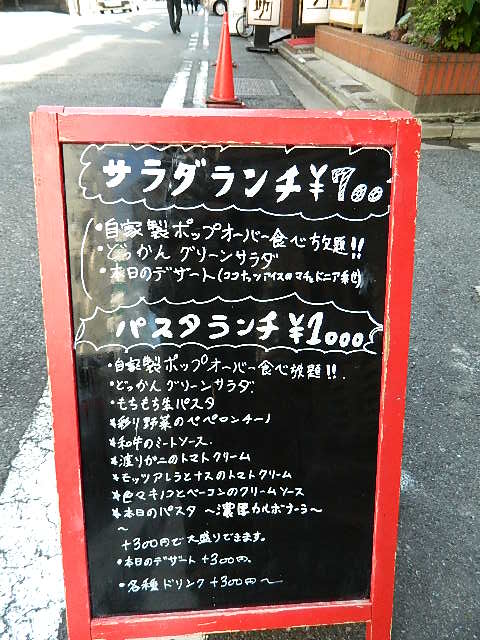 サラダランチ ¥700
・自家製ポップオーバー食べ放題!!
・どっかん グリーンサラダ
・本日のデザート(ココナッツアイスのマチェドニア
パスタランチ ¥1000
・自家製ポップオーバー食べ放題!!
・どっかん グリーンサラダ
・もちもち生パスタ
*彩り野菜のペペロンチーノ
*和牛のミートソース
*渡りガニのトマトクリーム
*モッツアレラとナスのトマトクリーム
*色々キノコとベーコンのクリームソース
*本日のパスタ ～濃厚カルボナーラ～
～
+300円で大盛りできます。
・本日のデザート +300円。
・各種ドリンク +300円～
助